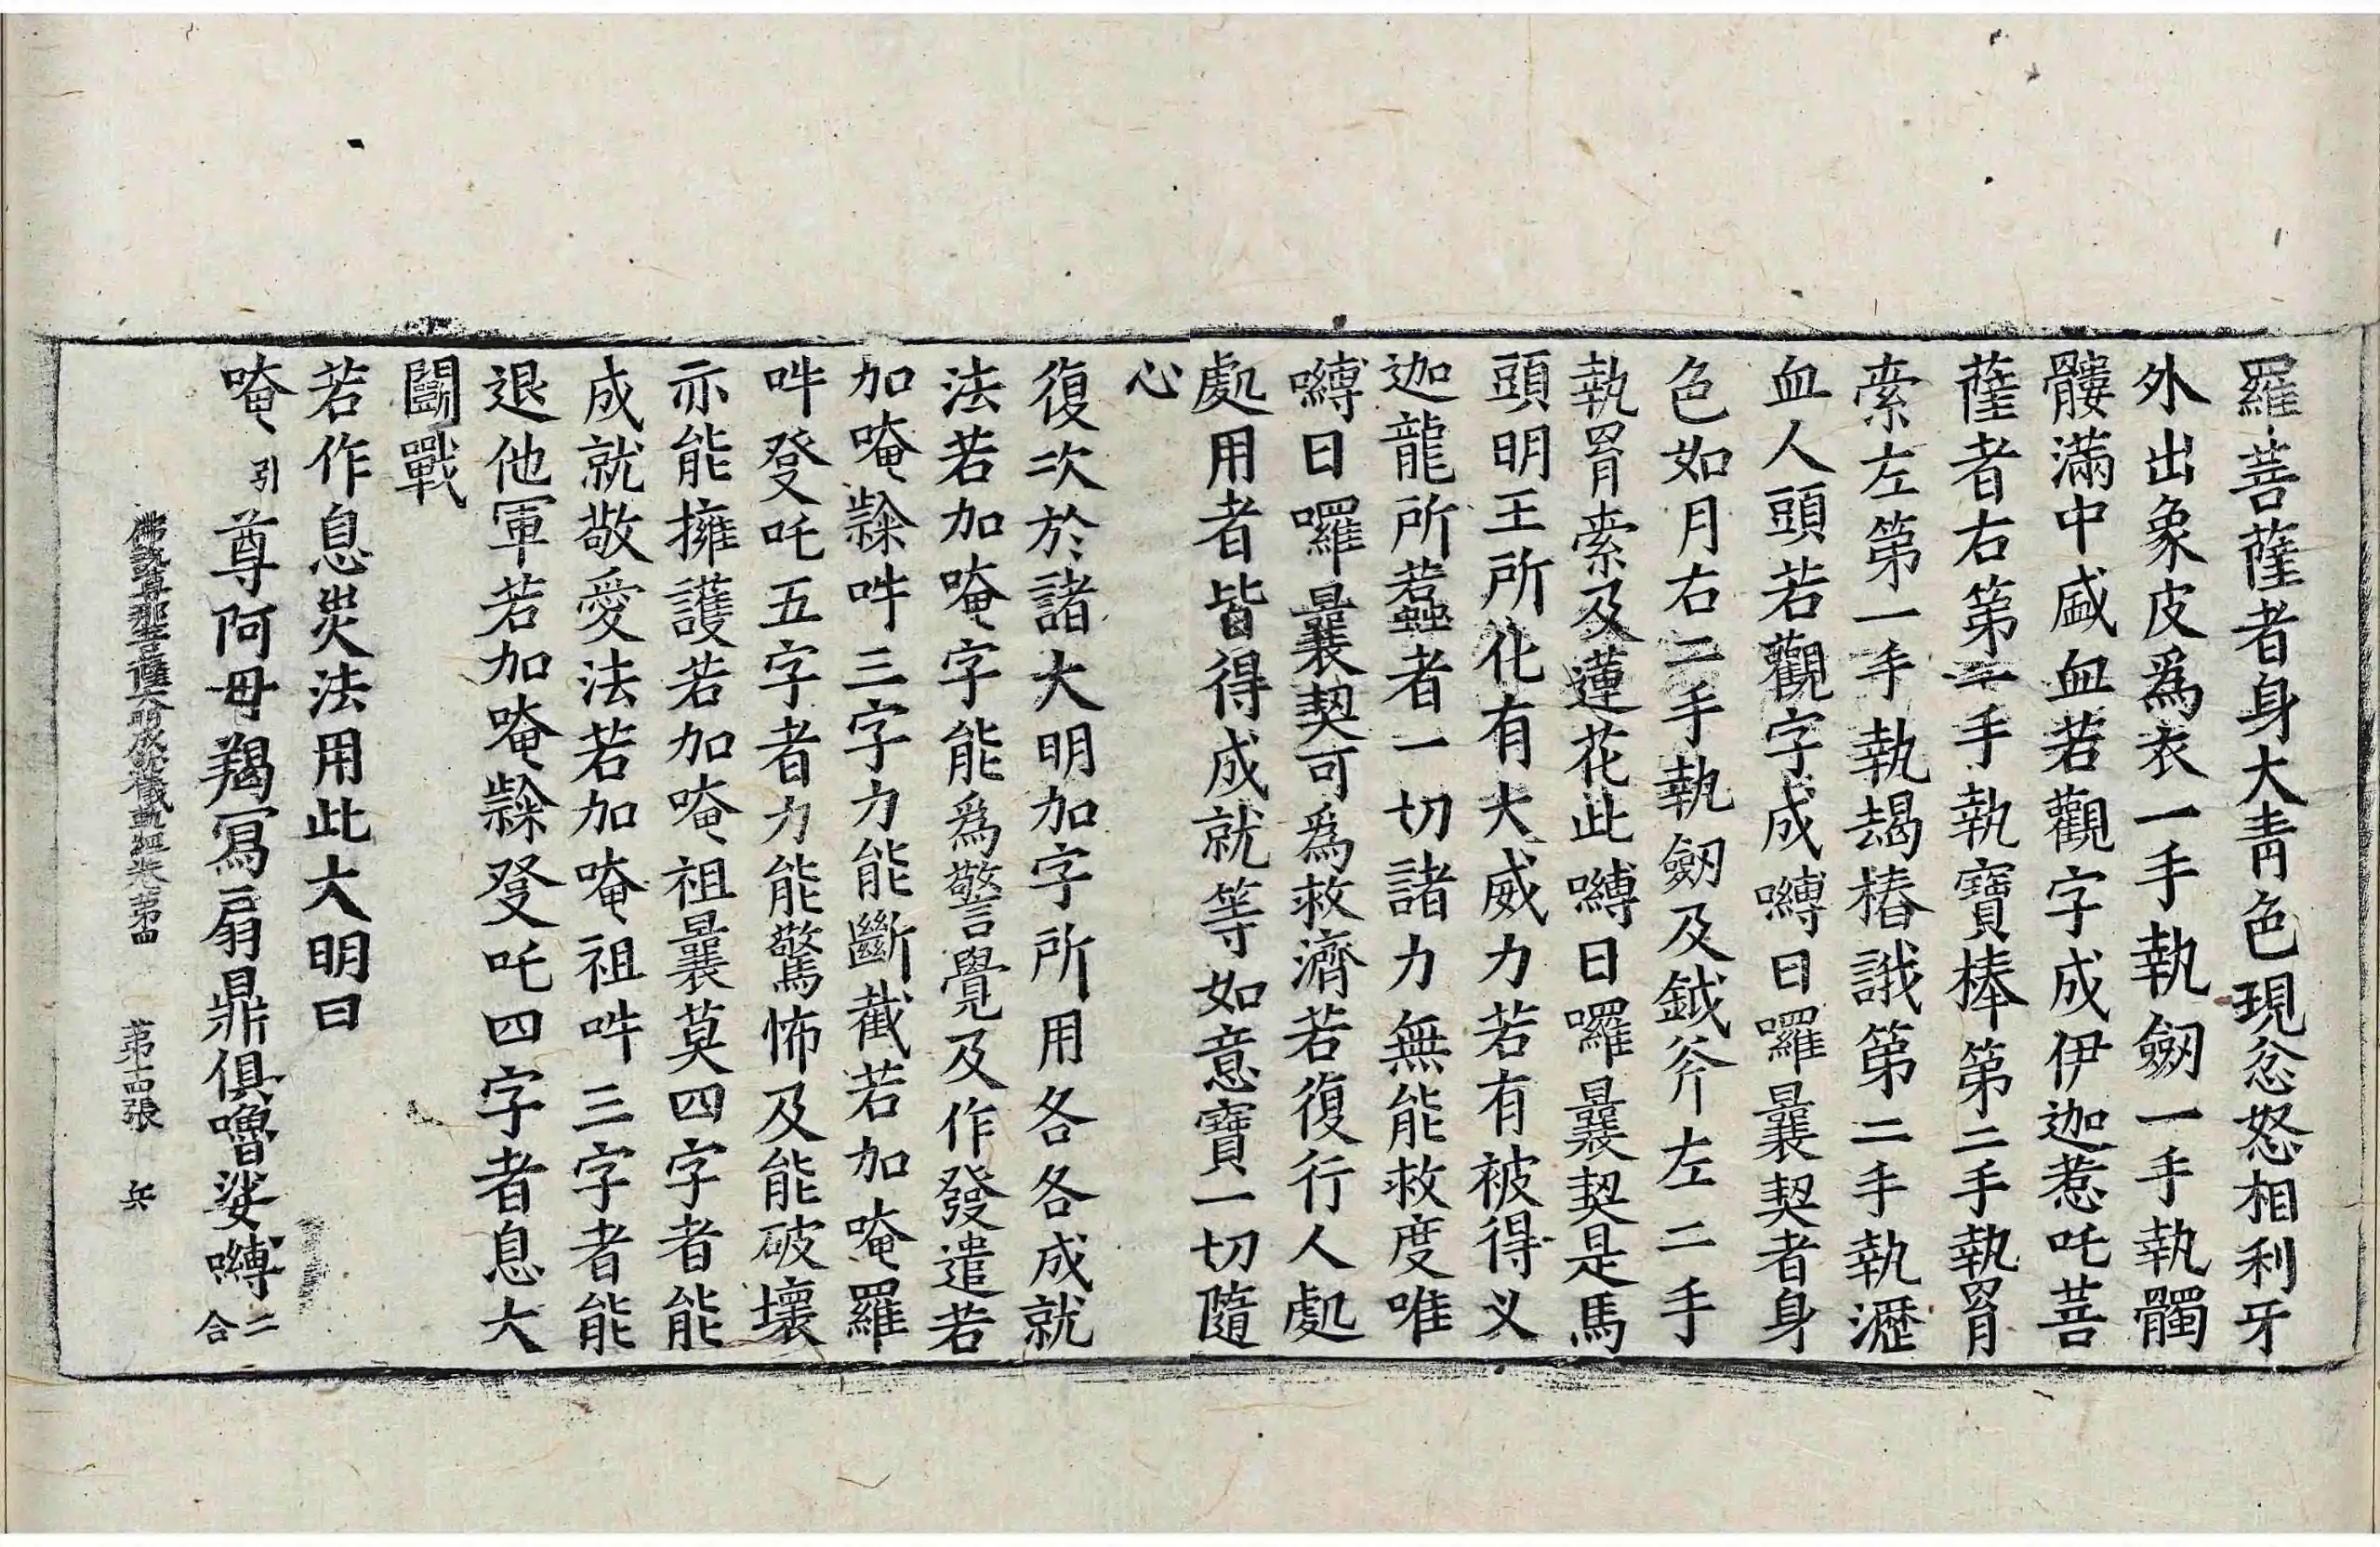 羅菩薩者身大青色現忿怒相利牙
外出象皮爲衣一手執劒一手執髑
髏滿中盛血若觀字成伊迦惹吒菩
薩者右第一手執寶棒第二手執罥
索左第一手執朅樁誐第二手執瀝
血人頭若觀字成嚩日囉曩契者身
色如月右二手執劒及鉞斧左二手
執罥索及蓮花此嚩日囉曩契是馬
頭明王所化有大威力若有被得乂
迦龍所蠚者一切諸力無能救度唯
嚩日囉曩契可爲救濟若復行人處
處用者皆得成就等如意寶一切隨
心
復次於諸大明加字所用各各成就
法若加唵字能爲警覺及作發遣若
加唵齂吽三字力能斷截若加唵羅
吽癹吒五字者力能驚怖及能破壞
亦能擁護若加唵祖曩莫四字者能
成就敬愛法若加唵祖吽三字者能
退他軍若加唵齂癹吒四字者息大
鬭戰
若作息災法用此大明曰
唵引尊阿毋羯寫扇鼎俱嚕娑嚩二合
佛說尊那菩薩大明成就儀軌經卷第四 第十四張 兵